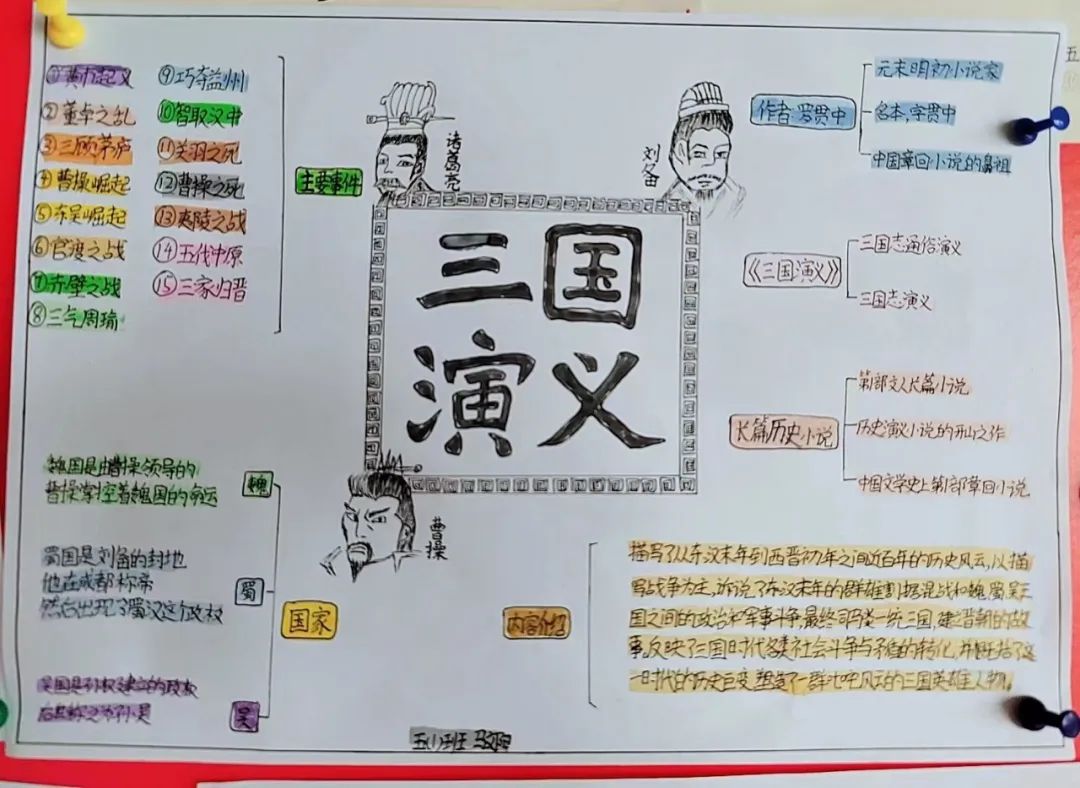 ①黄巾起义
②董卓之乱
③三顾茅庐
④曹操崛起
⑤东吴崛起
⑥官渡之战
⑦赤壁之战
⑧三气周瑜
⑨巧夺益州
⑩智取汉中
⑪关羽之死
⑫曹操之死
⑬夷陵之战
⑭五伐中原
⑮三家归晋
主要事件
诸葛亮
刘备
三国
演义
曹操
作者:罗贯中
元末明初小说家
名本,字贯中
中国章回小说的鼻祖
《三国演义》
三国志通俗演义
三国志演义
长篇历史小说
第一部文人长篇小说
历史演义小说的开山之作
中国文学史上第一部章回小说
魏国是由曹操领导的
曹操掌控着魏国的命运
魏
蜀国是刘备的封地
他在成都称帝
然后出现了蜀汉这个政权
蜀
国家
吴国是孙权建立的政权
吴
内容介绍
描写了从东汉末年到西晋初年之间近百年的历史风云,以描
写战争为主,诉说了东汉末年的群雄割据混战和魏蜀吴三
国之间的政治和军事斗争,最终司马炎一统三国,建立晋朝的故
事,反映了三国时代各类社会斗争与矛盾的转化,并概括了这
一时代的历史巨变,塑造了一群叱咤风云的三国英雄人物。
五(1)班
五